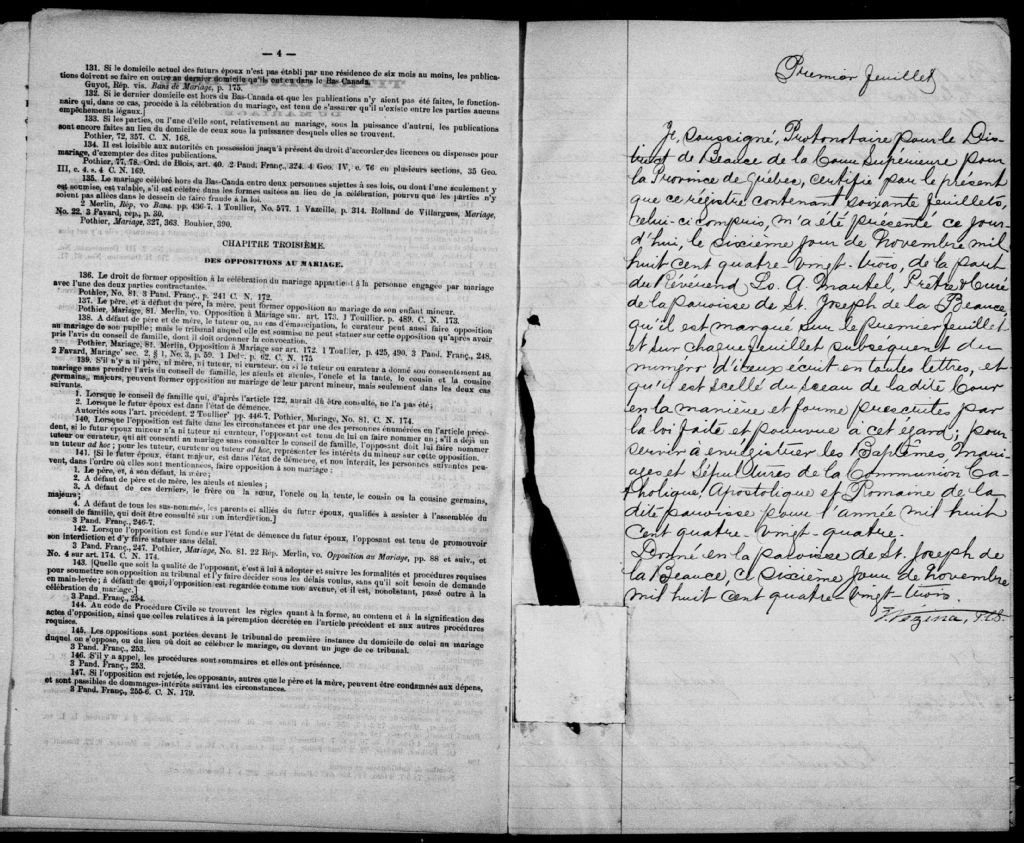 — 4 —
131. Si le domicile actuel des futurs époux n'est pas établi par une résidence de six mois au moins, les publica-
tions doivent se faire en outre au dernier domicile qu'ils ont eu dans le Bas-Canada.
Guyot, Rép. vis. Bans de Mariage, p. 175.
132. Si le dernier domicile est hors du Bas-Canada et que les publications n'y aient pas été faites, le fonction-
naire qui, dans ce cas, procède à la célébration du mariage, est tenu de s'assurer qu'il n'existe entre les parties aucuns
empêchements légaux.]
133. Si les parties, ou l'une d'elles sont, relativement au mariage, sous la puissance d'autrui, les publications
sont encore faites au lieu du domicile de ceux sous la puissance desquels elles se trouvent.
Pothier, 72, 357. C. N. 168.
134. Il est loisible aux autorités en possession jusqu'à présent du droit d'accorder des licences ou dispenses pour
mariage, d'exempter des dites publications.
Pothier, 77, 78. Ord. de Blois, art. 40. 2 Pand. Franç., 324. 4 Geo. IV, c. 76 en plusieurs sections, 35 Geo.
III, c. 4. s. 4 C. N. 169.
135. Le mariage célébré hors du Bas-Canda entre deux personnes sujettes à ses lois, ou dont l'une seulement y
est soumise, est valable, s'il est célébré dans les formes usitées au lieu de la célébration, pourvu que les parties n'y
soient pas allées dans le dessein de faire fraude à la loi.
2 Merlin, Rép, vo Bans. pp. 436-7. 1 Toullier, No. 577. 1 Vazeille, p. 314. Rolland de Villargues, Mariage,
No. 22. 3 Favard, rép., p. 30.
Pothier, Mariage, 327, 363. Bouhier, 390.
CHAPITRE TROISIÈME.
DES OPPOSITIONS AU MARIAGE.
136. Le droit de former opposition à la célébration du mariage appartient à la personne engagée par mariage
avec l'une des deux parties contractantes.
Pothier, No. 81. 3 Pand. Franç., p. 241 C. N. 172.
137. Le père, et à défaut du père, la mère, peut former opposition au mariage de son enfant mineur.
Pothier, Mariage, 81. Merlin, vo. Opposition à Mariage sur. art. 173. 1 Toullier, p. 489. C. N. 173.
138. A défaut de père et de mère, le tuteur ou, au cas d'émancipation, le curateur peut aussi faire opposition
au mariage de son pupille; mais le tribunal auquel elle est soumise ne peut statuer sur cette opposition qu'après avoir
pris l'avis du conseil de famille, dont il doit ordonner la convocation.
Pothier, Mariage, 81. Merlin, Opposition à Mariage sur art. 172. 1 Toullier, p. 425, 490. 3 Pand. Franç., 248.
2 Favard, Mariage' sec. 2. § 1, No. 3, p. 59. 1 Delv. p. 62. C. N. 175
139. S'il n'y a ni père, ni mère, ni tuteur, ni curateur, ou si le tuteur ou curateur a donné son consentement au
mariage sans prendre l'avis du conseil de famille, les aïeuls et aïeules, l'oncle et la tante, le cousin et la cousine
germains, majeurs, peuvent former opposition au mariage de leur parent mineur, mais seulement dans les deux cas
suivants.
1. Lorsque le conseil de famille qui, d'après l'article 122, aurait dû être consulté, ne l'a pas été;
2. Lorsque le futur époux est dans l'état de démence.
Autorités sous l'art. précédent. 2 Toullier' pp. 446-7. Pothier, Mariage, No. 81. C. N. 174.
140. Lorsque l'opposition est faite dans les circonstances et par une des personnes énumérées en l'article précé-
dent, si le futur époux mineur n'a ni tuteur ni curateur, l'opposant est tenu de lui en faire nommer un; s'il a déjà un
tuteur ou curateur, qui ait consenti au mariage sans consulter le conseil de famille, l'opposant doit lui faire nommer
un tuteur ad hoc; pour les tuteur, curateur ou tuteur ad hoc, représenter les intérêts du mineur sur cette opposition.
141. [Si le futur époux, étant majeur, est dans l'état de démence, et non interdit, les personnes suivantes peu-
vent, dans l'ordre où elles sont mentionnées, faire opposition à son mariage:
1. Le père, et, à son défaut, la mère;
2. A défaut de père et de mère, les aïeuls et aïeules;
3. A défaut de ces derniers, le frère ou la sœur, l'oncle ou la tente, le cousin ou la cousine germains,
majeurs;
4. A défaut de tous les sus-nommés, les parents et alliés du futur époux, qualifiés à assister à l'assemblée du
conseil de famille, qui doit être consulté sur son interdiction.]
3 Pand. Franç., 246-7.
142. Lorsque l'opposition est fondée sur l'état de démence du futur époux, l'opposant est tenu de promouvoir
son interdiction et d'y faire statuer sans délai.
3 Pand. Franç., 247. Pothier, Mariage, No. 81. 22 Rép. Merlin, vo. Opposition au Mariage, pp. 88 et suiv., et
No. 4 sur art. 174. C. N. 174.
143. [Quelle que soit la qualité de l'opposant, c'est à lui à adopter et suivre les formalités et procédures requises
pour soumettre son opposition au tribunal et l'y faire décider sous les délais voulus, sans qu'il soit besoin de demande
en main-levée; à défaut de quoi, l'opposition est regardée comme non avenue, et il est, nonobstant, passé outre à la
célébration du mariage.]
3 Pand. Franç., 254.
144. Au code de Procédure Civile se trouvent les règles quant à la forme, au contenu et à la signification des
actes d'opposition, ainsi que celles relatives à la péremption décrétée en l'article précédent et aux autres procédures
requises.
145. Les oppositions sont portées devant le tribunal de première instance du domicile de celui au mariage
duquel on s'oppose, ou du lieu où doit se célébrer le mariage, ou devant un juge de ce tribunal.
3 Pand. Franç., 253.
146. S'il y a appel, les procédures sont sommaires et elles ont préséance.
3 Pand. Franç., 253.
147. Si l'opposition est rejetée, les opposants, autres que le père et la mère, peuvent être condamnés aux dépens,
et sont passibles de dommages-intérêts suivant les circonstances.
3 Pand. Franç., 255-6. C. N. 179.
Premier feuillet
Je, soussigné, Protonotaire pour le Dis-
trict de Beauce de la Cour Supérieure pour
la Province de Québec, certifie par le présent
que ce régistre contenant soixante feuillets,
celui-ci compris, m'a été présenté ce jour-
d'hui, le sixième jour de Novembre mil
huit cent quatre-vingt-trois, de la part
du Révérend Ls. A. Martel, Prêtre & Curé
de la paroisse de St. Joseph de la Beauce,
qu'il est marqué sur le premier feuillet
et sur chaque feuillet subséquent du
numéro d'iceux écrit en toutes lettres, et
qu'il est scellé du sceau de la dite Cour
en la manière et forme prescrites par
la loi faite et pourvue à cet égard; pour
servir à enregistrer les Baptêmes, Mari-
ages et Sépultures de la Communion Ca-
tholique, Apostolique et Romaine de la
dite paroisse pour l'année mil huit
cent quatre-vingt-quatre.
Donné en la paroisse de St. Joseph de
la Beauce, ce sixième jour de Novembre
mil huit cent quatre-vingt-trois.
Vézina,